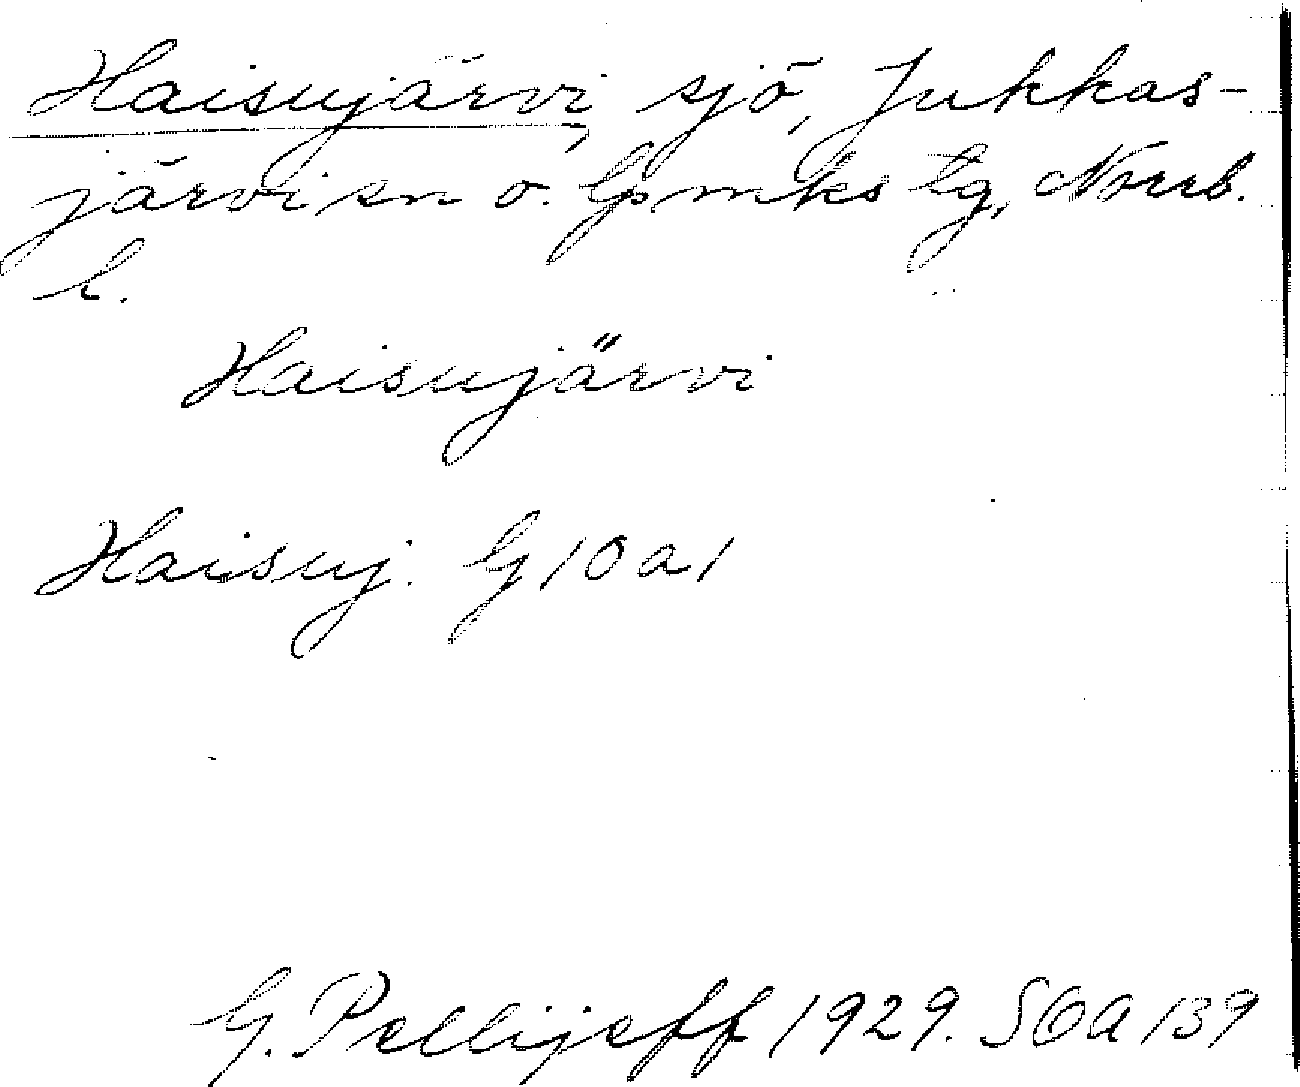 Haisujärvi, sjö, Jukkas-
järvi sn o. lpmks tg, Norrb.
l.
Haisujärvi
Haisuj. G 10 a 1
G. Pellijeff 1929. SOA 139